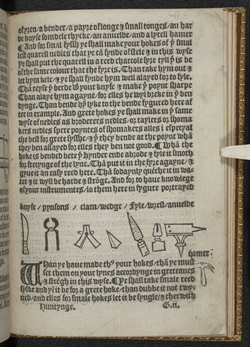 of yren / a bender / a payre of longe & small tonges / an har
de knyfe somdele thycke / an anuelde / and a lytyll hamer
¶ And for smal fysshe ye shall make your hokes of y̔ smal
lest quarell nedles that ye cā fynde of stele & in this wyse
ye shall put the quarell in a reed charcole fyre tyll yt be
of the same colour that the fyre is. Than take hym out &
let hym kele & ye shall fynde hym well alayed for to fyle.
Thā reyse y̔ berde wt your knyfe & make y̔ poynt sharpe
Than alaye hym agayne: for elles he wyl breke in the ben
dynge. Than bende hym lyke to the bende fygured here af
ter in example. And grete hokes ye shall make in y̔ same
wyse of nedles as broderers nedles: or taylers or shoma
kers nedles spere poyntes of shomakers alles
the best for grete fysshe / & they bende at the poynt whā
they ben assayed for elles they ben not good. Whā the
hoke is bended bete y̔ hynder ende abrode & fyle it smoth
for fretynge of the lyne. Thā put it in the fyre agayne &
gyue it an easy reed hete. Thā sodaynly quēche it in wa
ter & it wyll be harde & strōge. And for to haue knowlege
of your instrumentes: lo theym here in fygure portrayed
knyfe / pynsons / clam / wedge / fyle / wrest / anuelde
hamer
Whan ye haue made thꝰ your hokes / thā ye must
set them on your lynes accordynge in gretenes
& strēgth in this wyse. Ye shall take smale reed
sylke and yf it be for a grete hoke / than dubbe it not twy
ned / and elles for smale hokes let it be syngle / & therwith
Huntynge. G.ii.